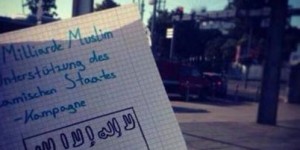 Milliarde Muslim
nterstützung des
amischen Staates
-Kampagne
لا إله إلا الله